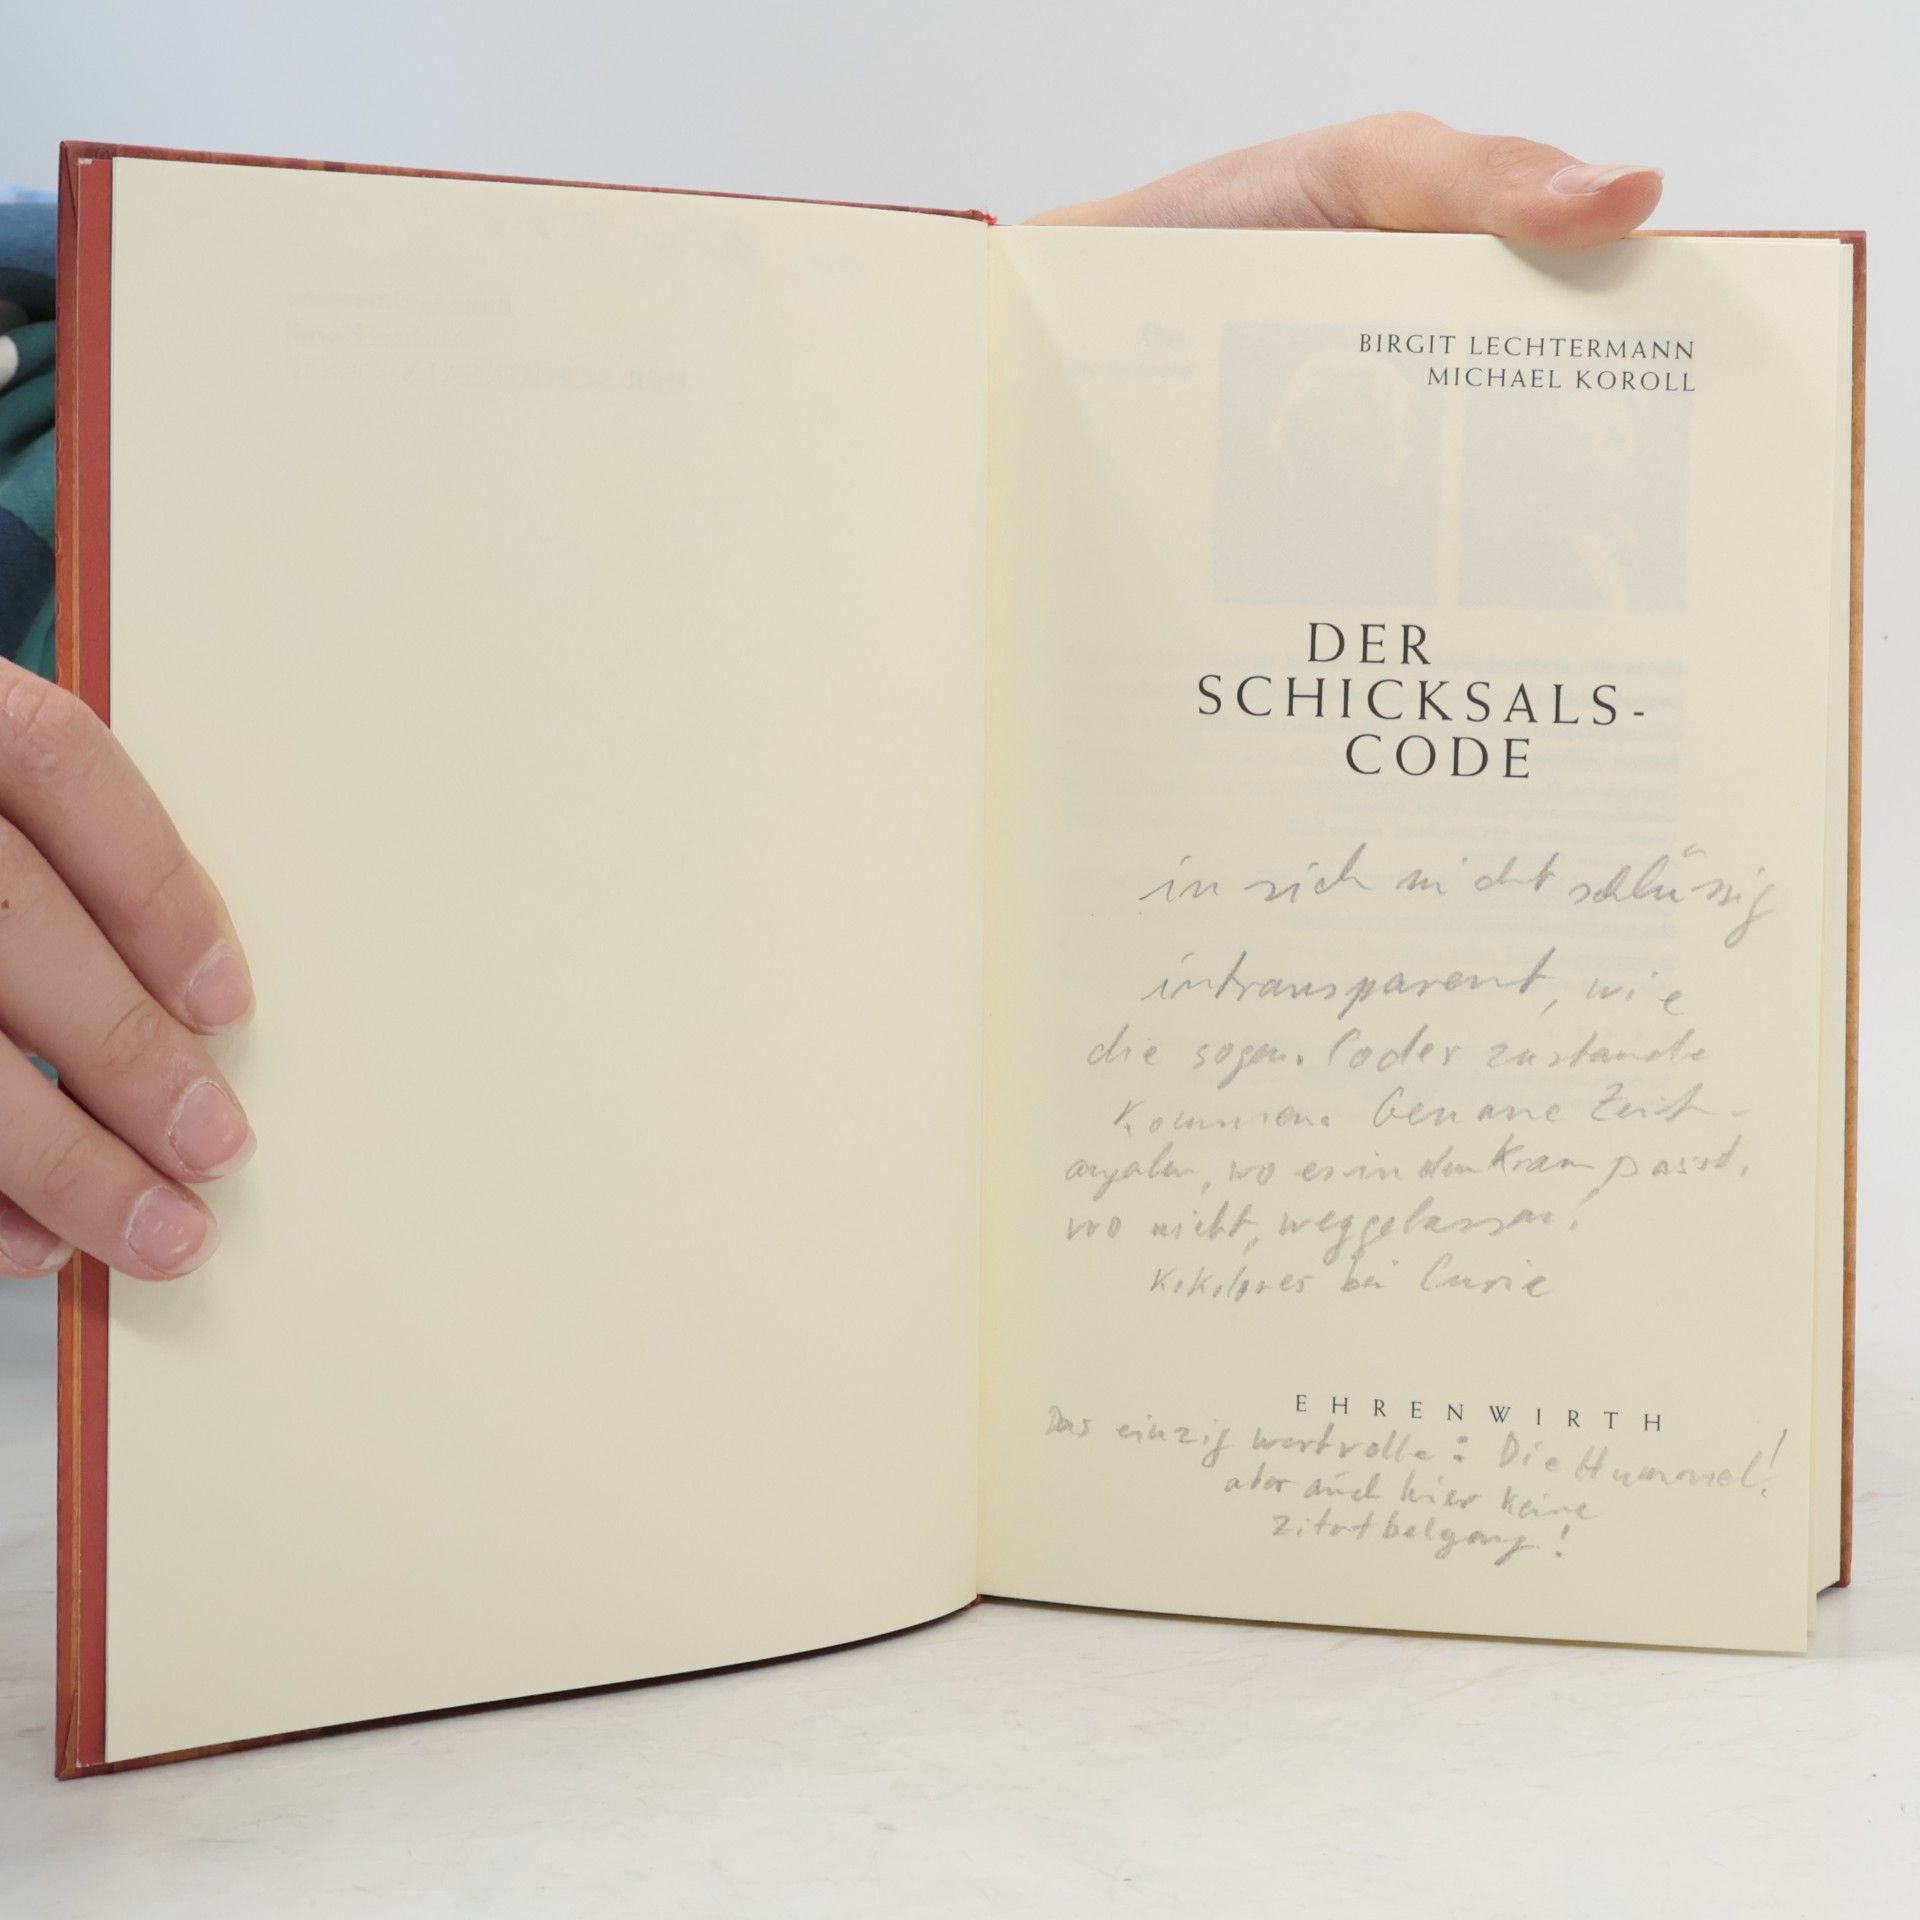 BIRGIT LECHTERMANN
MICHAEL KOROLL
DER
SCHICKSALS-
CODE
in sich nicht schlüssig
intransparent, wie
die sogen. Codes zustande
kommen. Genaue Zeit-
angaben, wo es in den Kram passt,
wo nicht, weggelassen!
Kokolores bei Curie
EHRENWIRTH
Das einzig wertvolle: Die Hummel!
aber auch hier keine